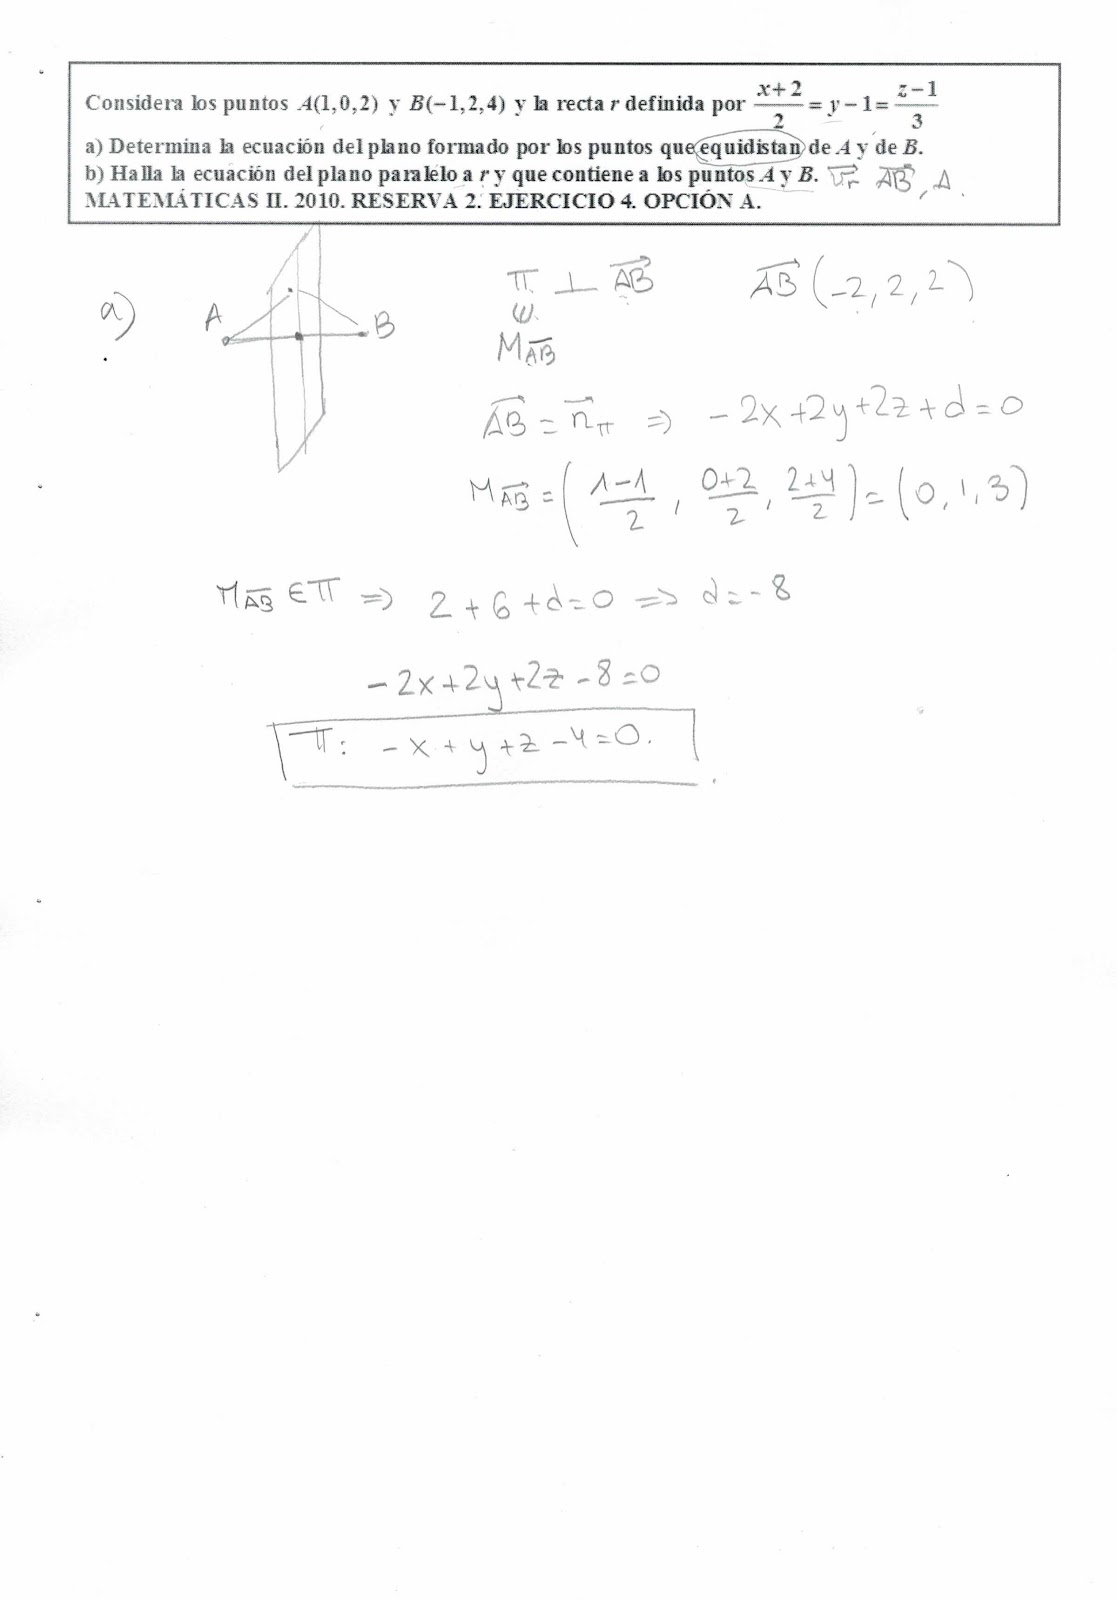 Considera los puntos A(1,0,2) y B(−1,2,4) y la recta r definida por (x+2)/2 = y−1 = (z−1)/3
a) Determina la ecuación del plano formado por los puntos que equidistan de A y de B.
b) Halla la ecuación del plano paralelo a r y que contiene a los puntos A y B. v⃗r AB⃗, A.
MATEMÁTICAS II. 2010. RESERVA 2. EJERCICIO 4. OPCIÓN A.
a) A B
π ⊥ AB⃗ AB⃗ (−2, 2, 2)
M AB
AB⃗ = n⃗π ⇒ −2x+2y+2z+d=0
M AB⃗ = ((1−1)/2, (0+2)/2, (2+4)/2) = (0, 1, 3)
M AB ∈ π ⇒ 2+6+d=0 ⇒ d=−8
−2x+2y+2z−8=0
π: −x+y+z−4=0.